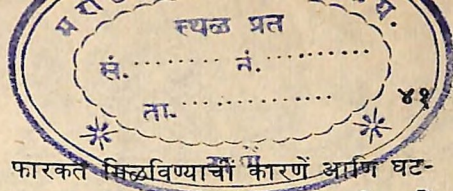 स्थळ प्रत
सं. .......... नं. ..........
४१
ता. ..................
फारकत मिळविण्याचीं कारणें आणि घट-